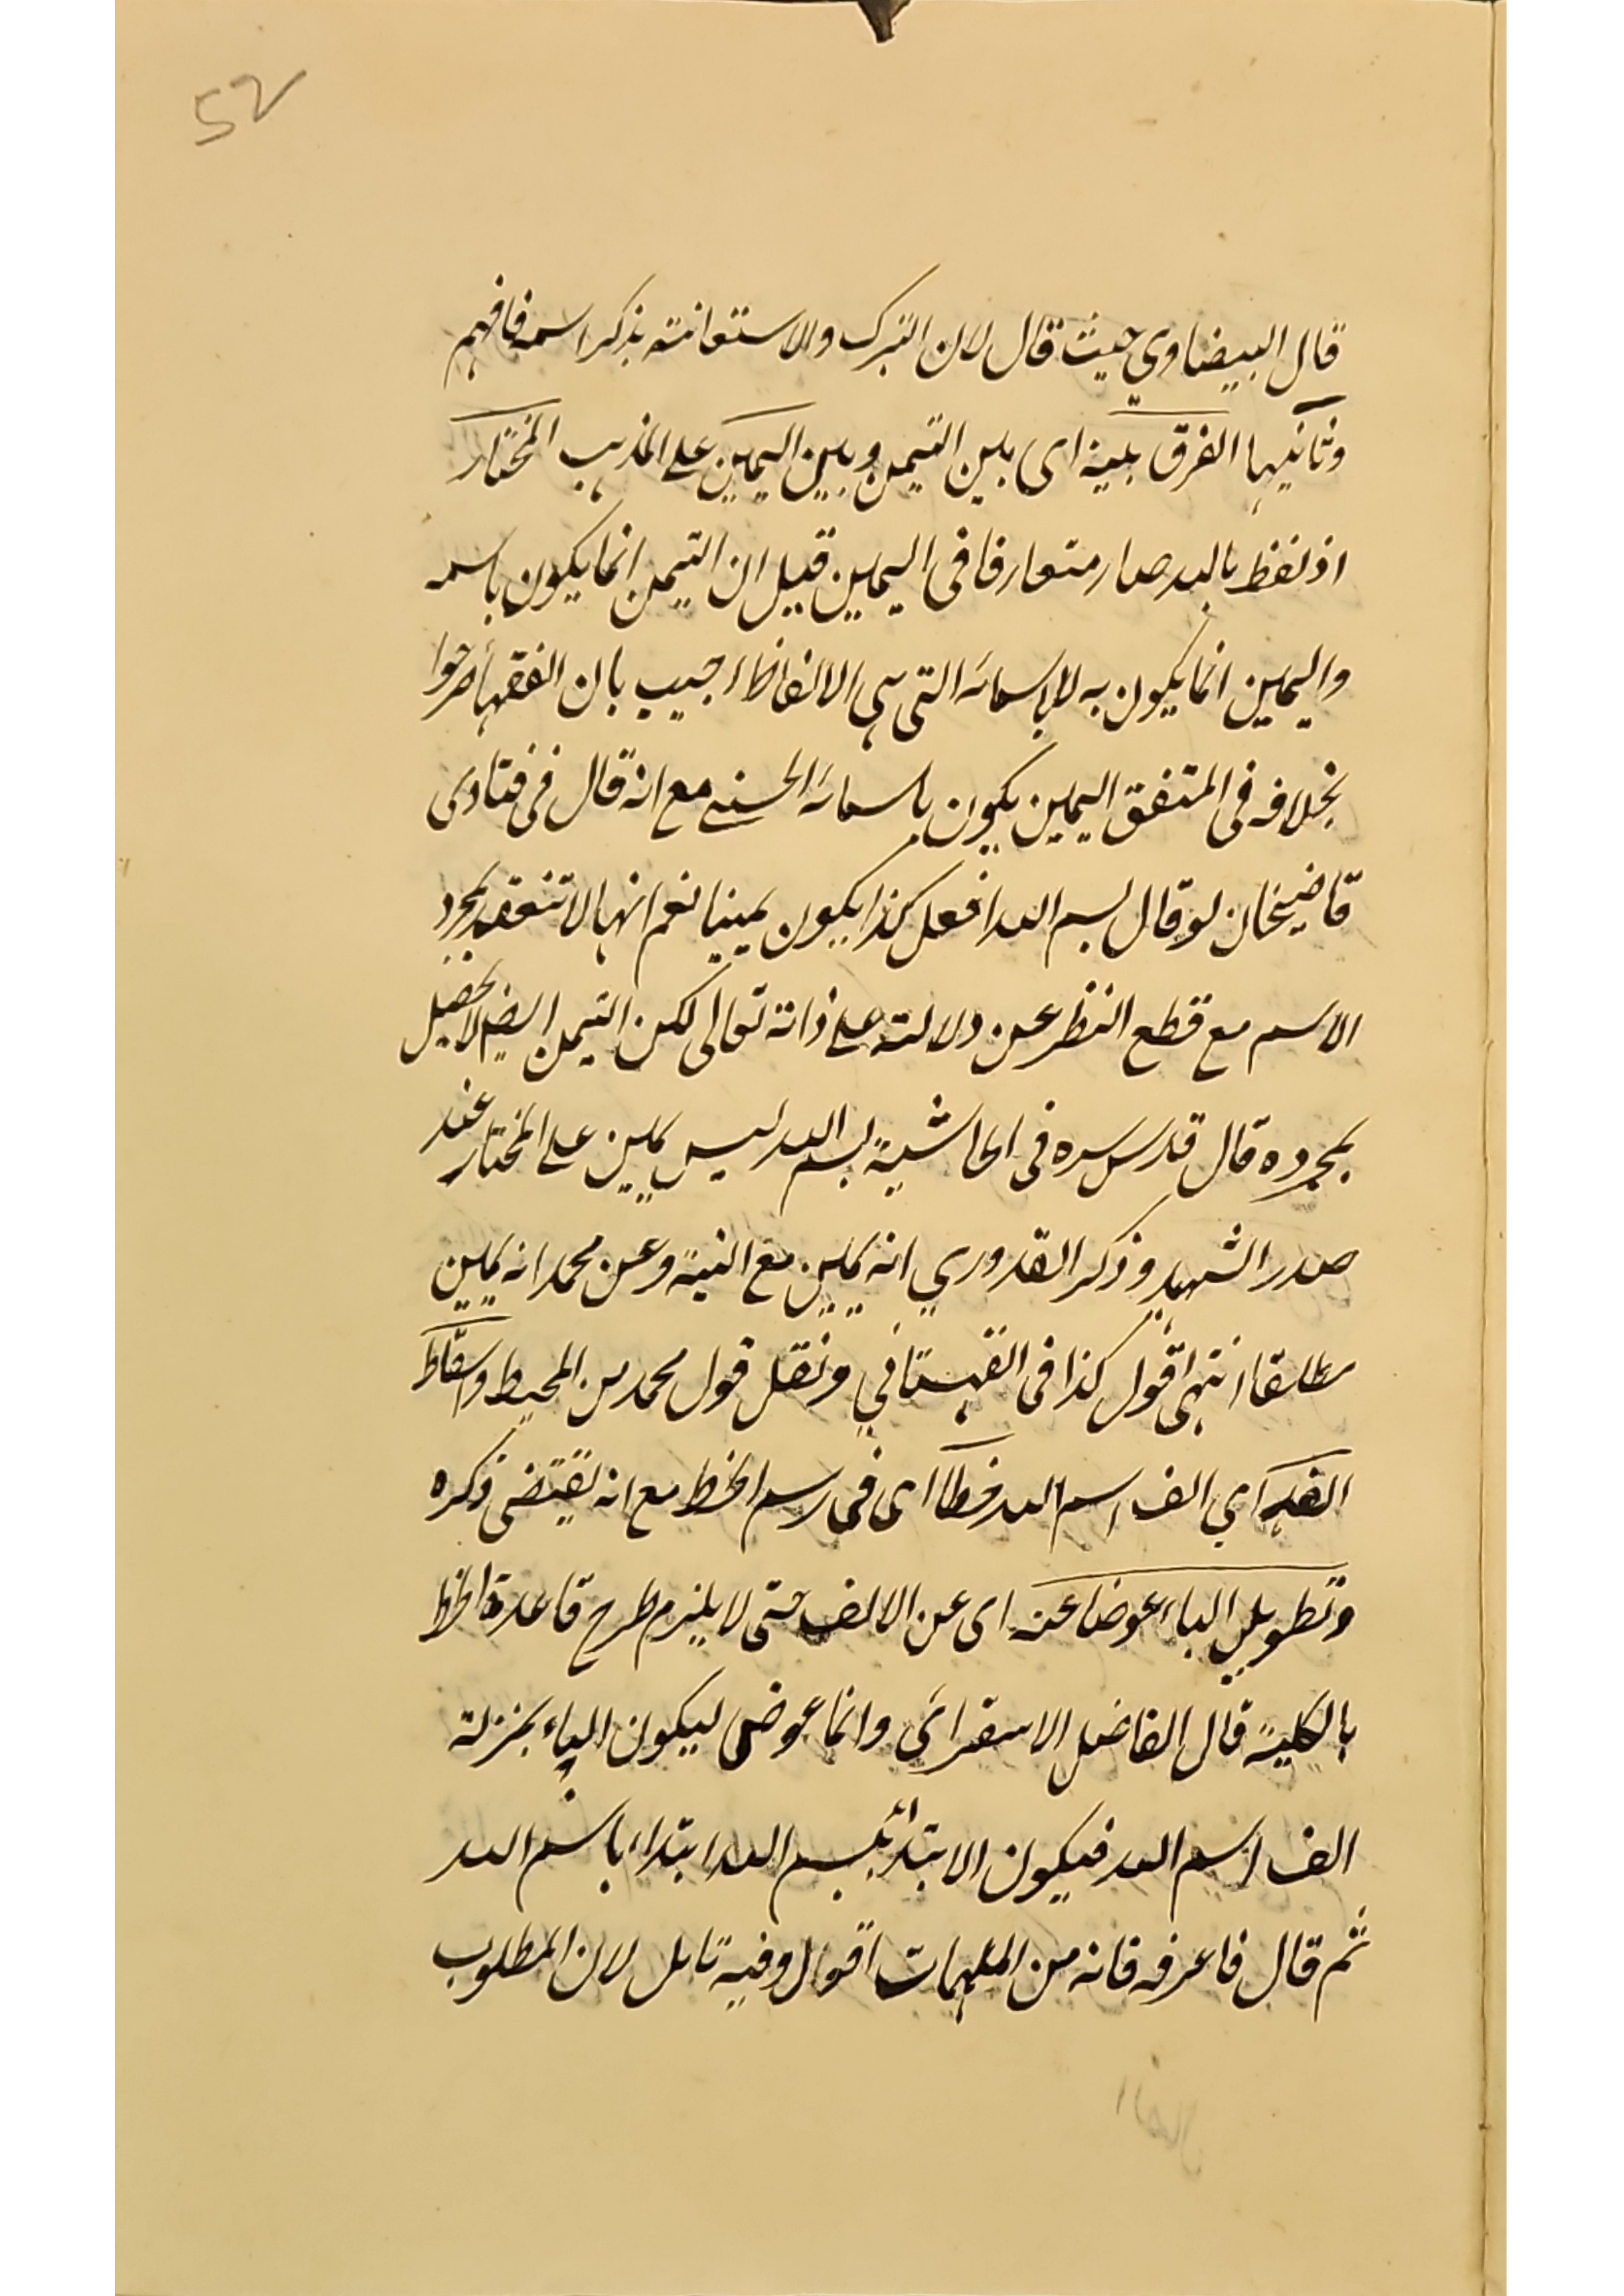 52
قال البيضاوي حيث قال لان التبرك والاستعانة بذكر اسمه فافهم
وثانيها الفرق بينه اى بين التيمن وبين اليمين على المذهب المختار
اذ لفظ بالله صار متعارفا فى اليمين قيل ان التيمن انما يكون باسمه
واليمين انما يكون به لا باسمائه التى هى الالفاظ اجيب بان الفقهاء صرحوا
بخلافه فى المتفق اليمين يكون باسمائه الحسنى مع انه قال فى فتاوى
قاضيخان لو قال بسم الله افعل كذا يكون يمينا نعم انها لا تنعقد بمجرد
الاسم مع قطع النظر عن دلالته على ذاته تعالى لكن التيمن ايضا لا يحصل
بمجرده قال قدس سره فى الحاشية بسم الله ليس يمين على المختار عند
صدر الشهيد وذكر القدوري انه يمين مع النية وعن محمد انه يمين
مطلقا انتهى اقول كذا فى القهستاني ونقل قول محمد من المحيط واسقاط
الفه اي الف اسم الله خطا اى فى رسم الخط مع انه يقتضى ذكره
وتطويل الباء عوضا عنه اى عن الالف حتى لا يلزم طرح قاعدة الخط
بالكلية قال الفاضل الاسفرائى وانما عوض ليكون الباء بمنزلة
الف اسم الله فيكون الابتداء ببسم الله ابتداء باسم الله
ثم قال فاعرفه فانه من الملهمات اقول وفيه تامل لان المطلوب